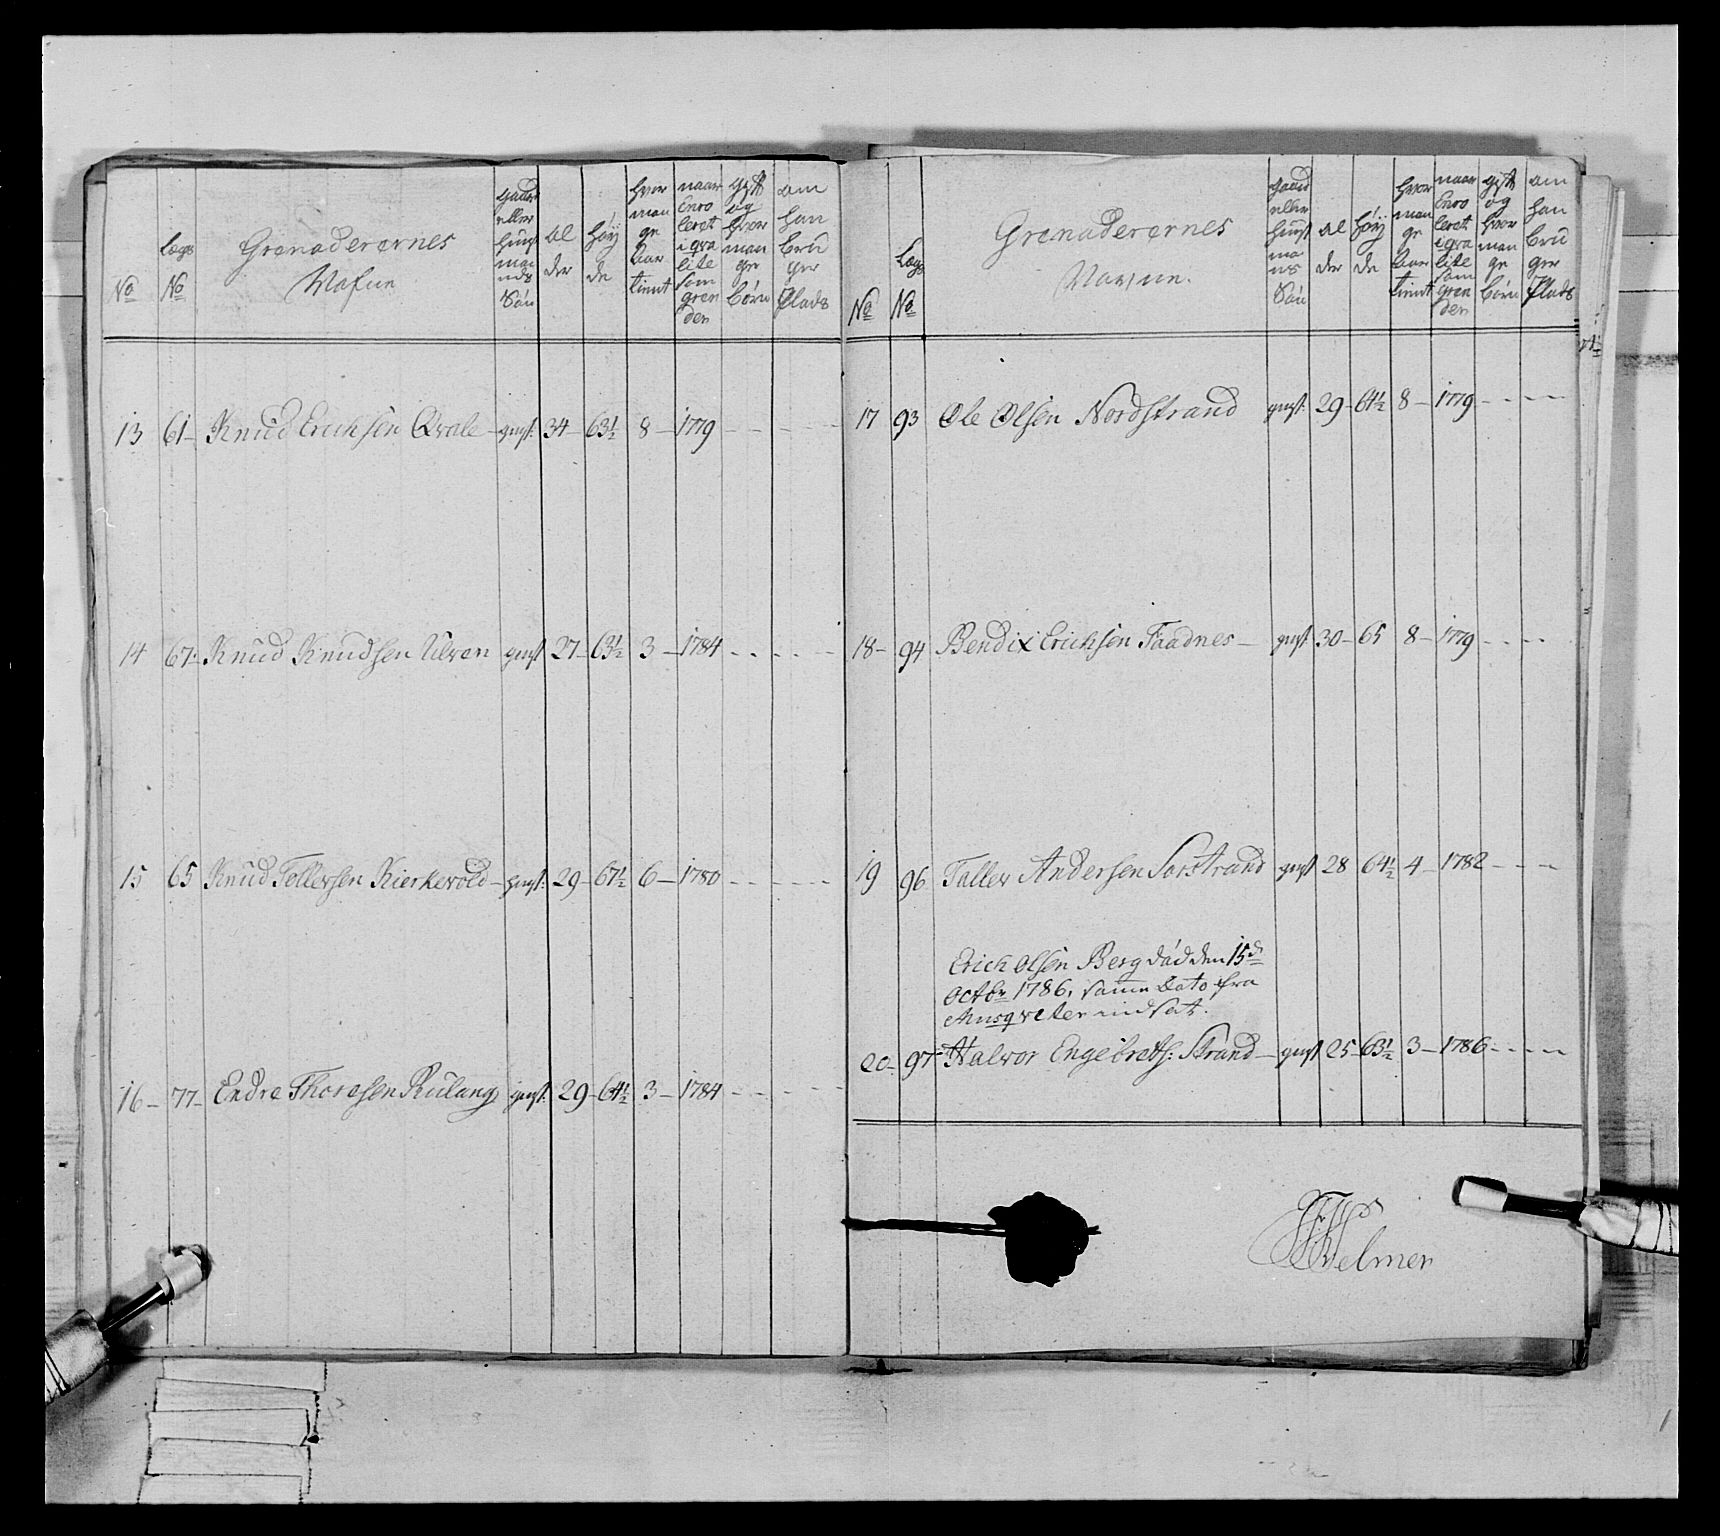 No
Lægs No
Grenaderernes Nafne
gaard eller huusmands Søn
alder
høyde
hvor mange aar tient
naar Enroleret i qvalite som grenader
gift og hvor mange børn
om han bruger Plads
13 61 - Knud Erichsen Qvale - gmst: 34 - 63½ 8 - 1779 - - - -
14 67 - Knud Knudsen Ulven gmst 27 - 63½ 3 - 1784 - - - -
15 65 Knud Tollevsen Kierkevold - gmst: 29 - 67½ 6 - 1780 - - - - -
16 - 77 - Endre Thoresen Rulang gmst: 29 - 64½ 3 - 1784 - - - -
No
Lægs No
Grenaderernes Nafne.
gaard eller huusmands Søn
alder
høyde
hvor mange aar tient
naar Enroleret i qvalite som grenader
gift og hvor mange børn
om han bruger Plads
17 93 Ole Olsen Nordstrand gmst: 29 - 64½ 8 - 1779 - - - -
18 - 94 Bendix Erichsen Faadnes - gmst 30 - 65 8 - 1779 - - - -
19 96 Tollev Andersen Sorstrand gmst 28 64½ 4 - 1782 - - - -
Erich Olsen Berg død den 15de
Octbr 1786, samme Dato fra
Musqveter indsat.
20 - 97 - Halvor Engebrets: Strand - gmst 25 - 63½ 3 - 1786 - - - -
Helmer